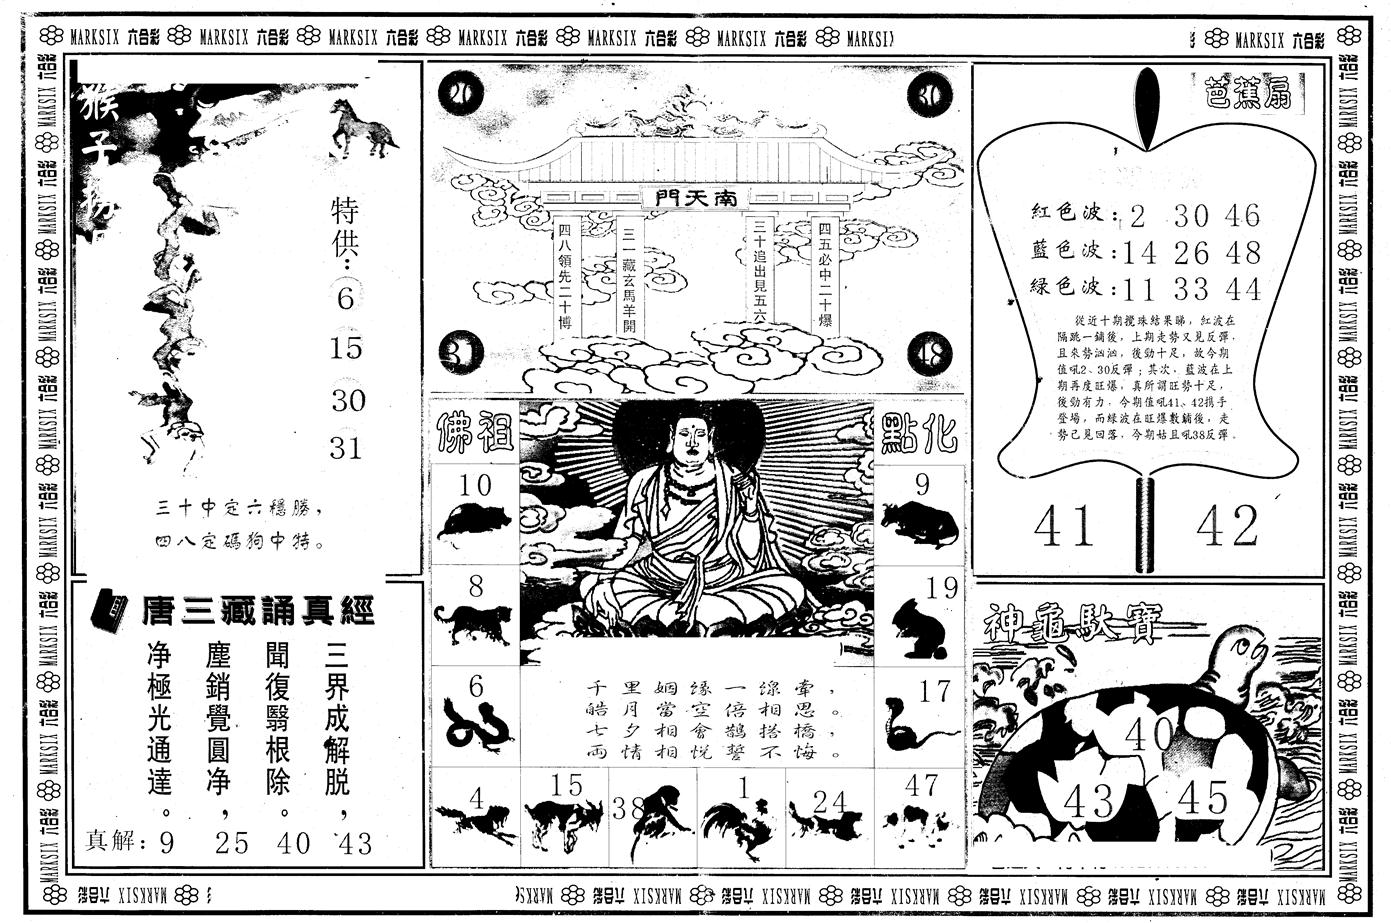 MARKSIX 六合彩 MARKSIX 六合彩 MARKSIX 六合彩 MARKSIX 六合彩 MARKSIX 六合彩 MARKSIX 六合彩 MARKSIX
MARKSIX 六合彩
猴子撈
特供：
6
15
30
31
三十中定六穩勝，
四八定碼狗中特。
唐三藏誦真經
三界成解脱，
聞復翳根除。
塵銷覺圓净，
净極光通達。
真解：9 25 40 43
20
30
31
48
南天門
四五必中二十爆
三十追出見五六
三一藏玄馬羊開
四八領先二十博
佛祖
點化
10
8
6
9
19
17
4
15
38
1
24
47
千里姻缘一線牽，
皓月當空倍相思。
七夕相會鵲搭橋，
両情相悦誓不悔。
芭蕉扇
紅色波：2 30 46
藍色波：14 26 48
綠色波：11 33 44
從近十期攪珠結果睇，紅波在
隔跳一鋪後，上期走勢又見反彈，
且來勢洶洶，後勁十足，故今期
值吼2、30反彈；其次，藍波在上
期再度旺爆，真所謂旺勢十足，
後勁有力，今期值吼41、42携手
登場，而綠波在旺爆數鋪後，走
勢已見回落，今期姑且吼38反彈。
41
42
神龜馱寶
40
43
45